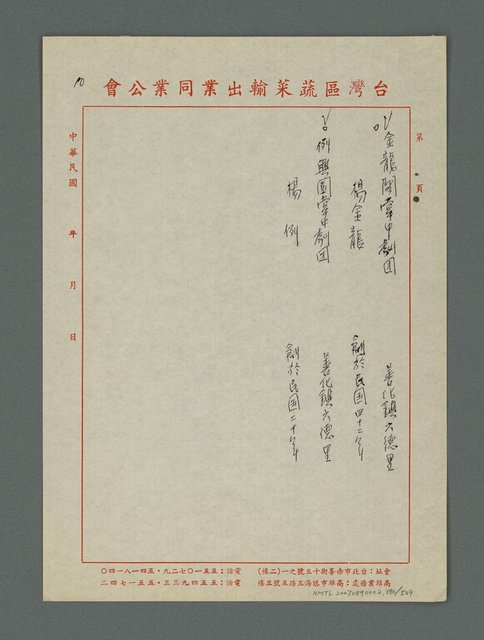 台灣區蔬菜輸出業同業公會
第 頁
金龍閣掌中劇团 善化鎮六德里
楊金龍 創於民国四十二年
例興園掌中劇団 善化鎮六德里
楊例 創於民国二十八年
中華民國 年 月 日
會址：台北市赤峯街十三號之一(二樓) 電話：五五一〇七二九・五四一八一四〇
高雄業務處：高雄市旭海三路五號三樓 電話：五五四九三三・五五一七四二
NMTL 20070890002.190/509